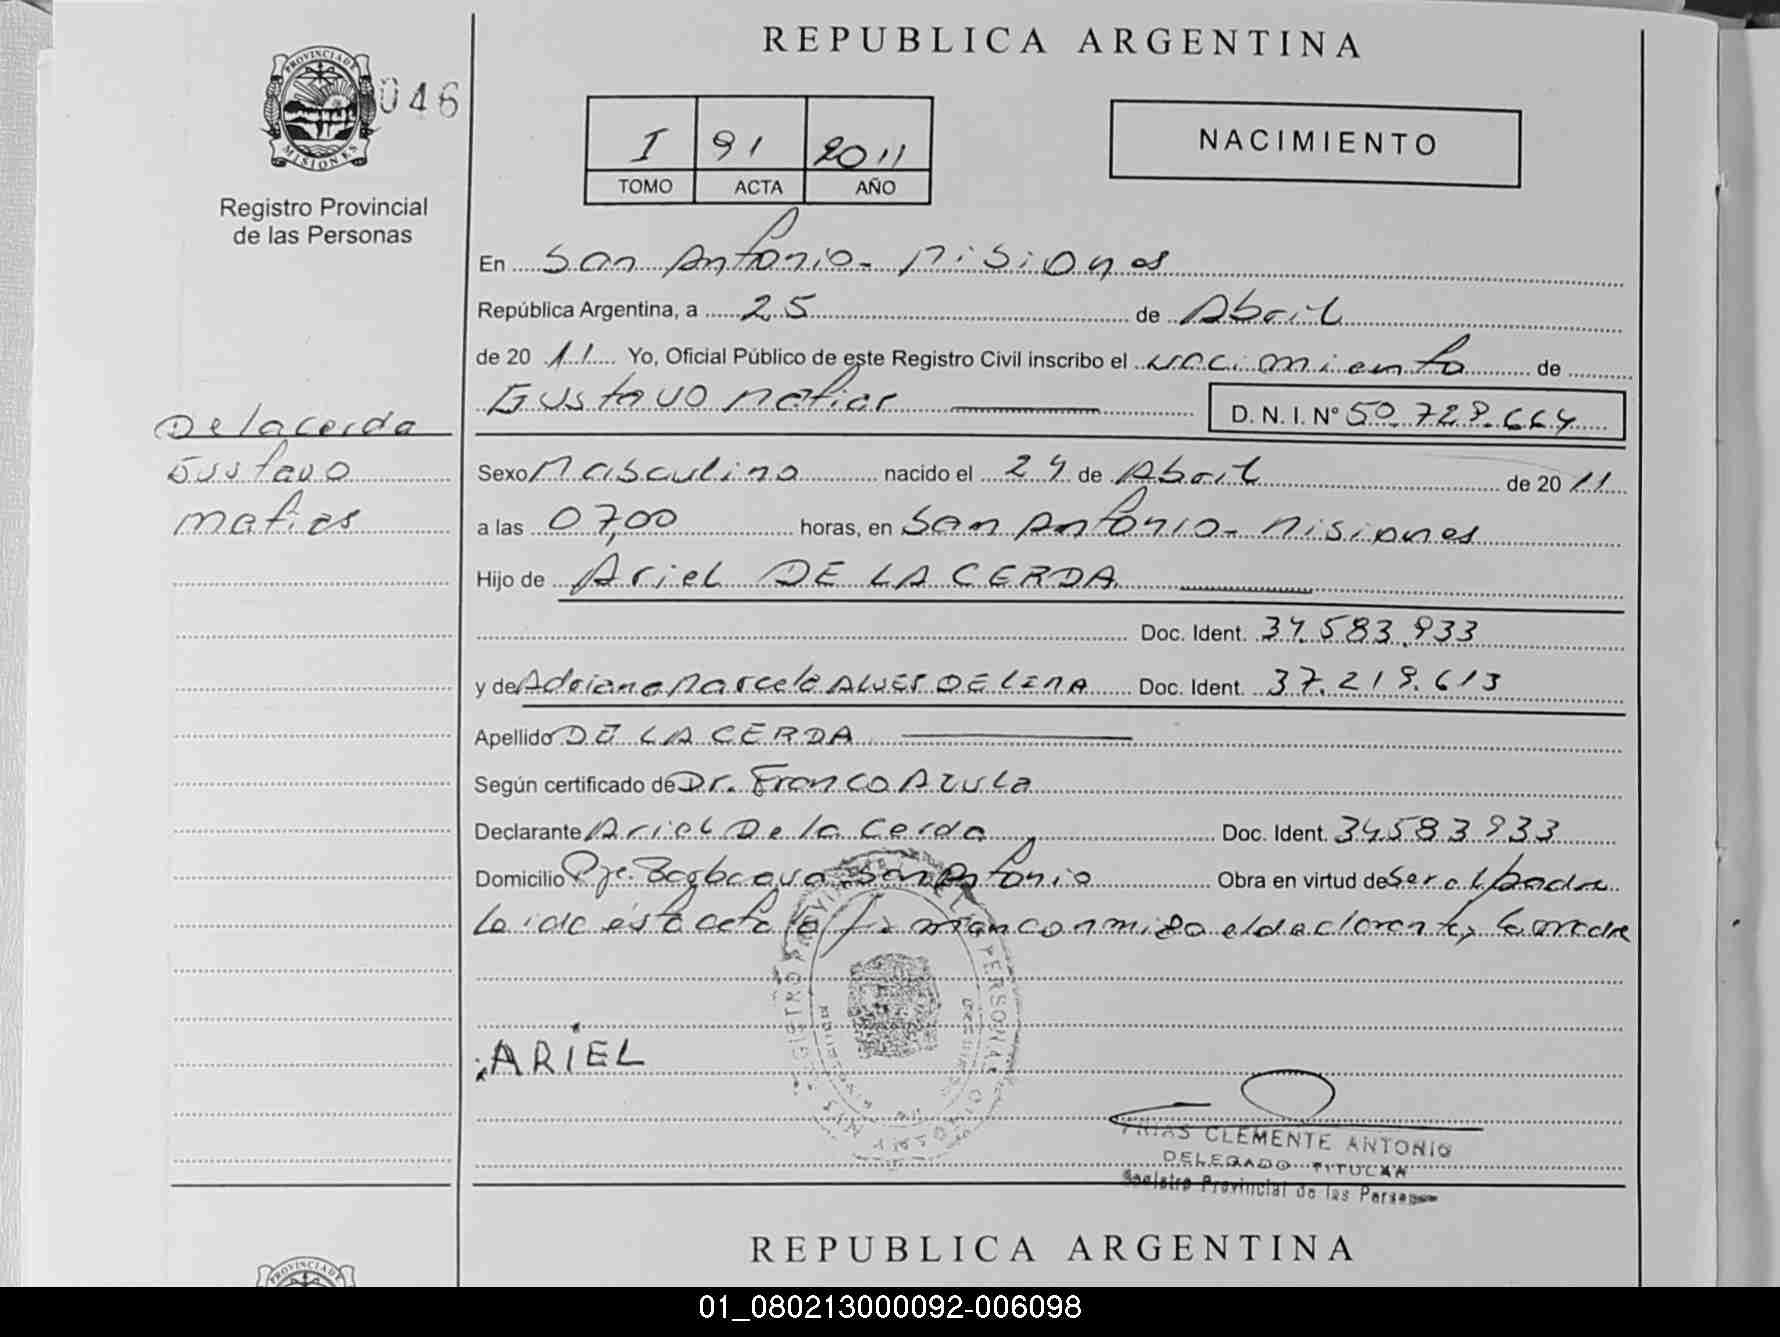 REPUBLICA ARGENTINA
PROVINCIA DE
MISIONES
046
Registro Provincial
de las Personas
I 91 2011
TOMO ACTA AÑO
NACIMIENTO
En San Antonio - Misiones
República Argentina, a 25 de Abril
de 20 11 Yo, Oficial Público de este Registro Civil inscribo el nacimiento de
Gustavo Matias D. N. I. Nº 50.729.664
De la cerda
Gustavo
matias
Sexo Masculino nacido el 24 de Abril de 20 11
a las 07,00 horas, en San Antonio - Misiones
Hijo de Ariel DE LA CERDA
Doc. Ident. 34.583.933
y de Adriana Marcela ALVES DE LIMA Doc. Ident. 37.219.613
Apellido DE LA CERDA
Según certificado de Dr. Franco Azula
Declarante Ariel De la Cerda Doc. Ident. 34.583.933
Domicilio Pje. San Antonio Obra en virtud de Ser el padre
Leida esta acta la firman conmigo el declarante y la madre
ARIEL
FRIAS CLEMENTE ANTONIO
DELEGADO TITULAR
Registro Provincial de las Personas
REPUBLICA ARGENTINA
PROVINCIA DE
01_080213000092-006098